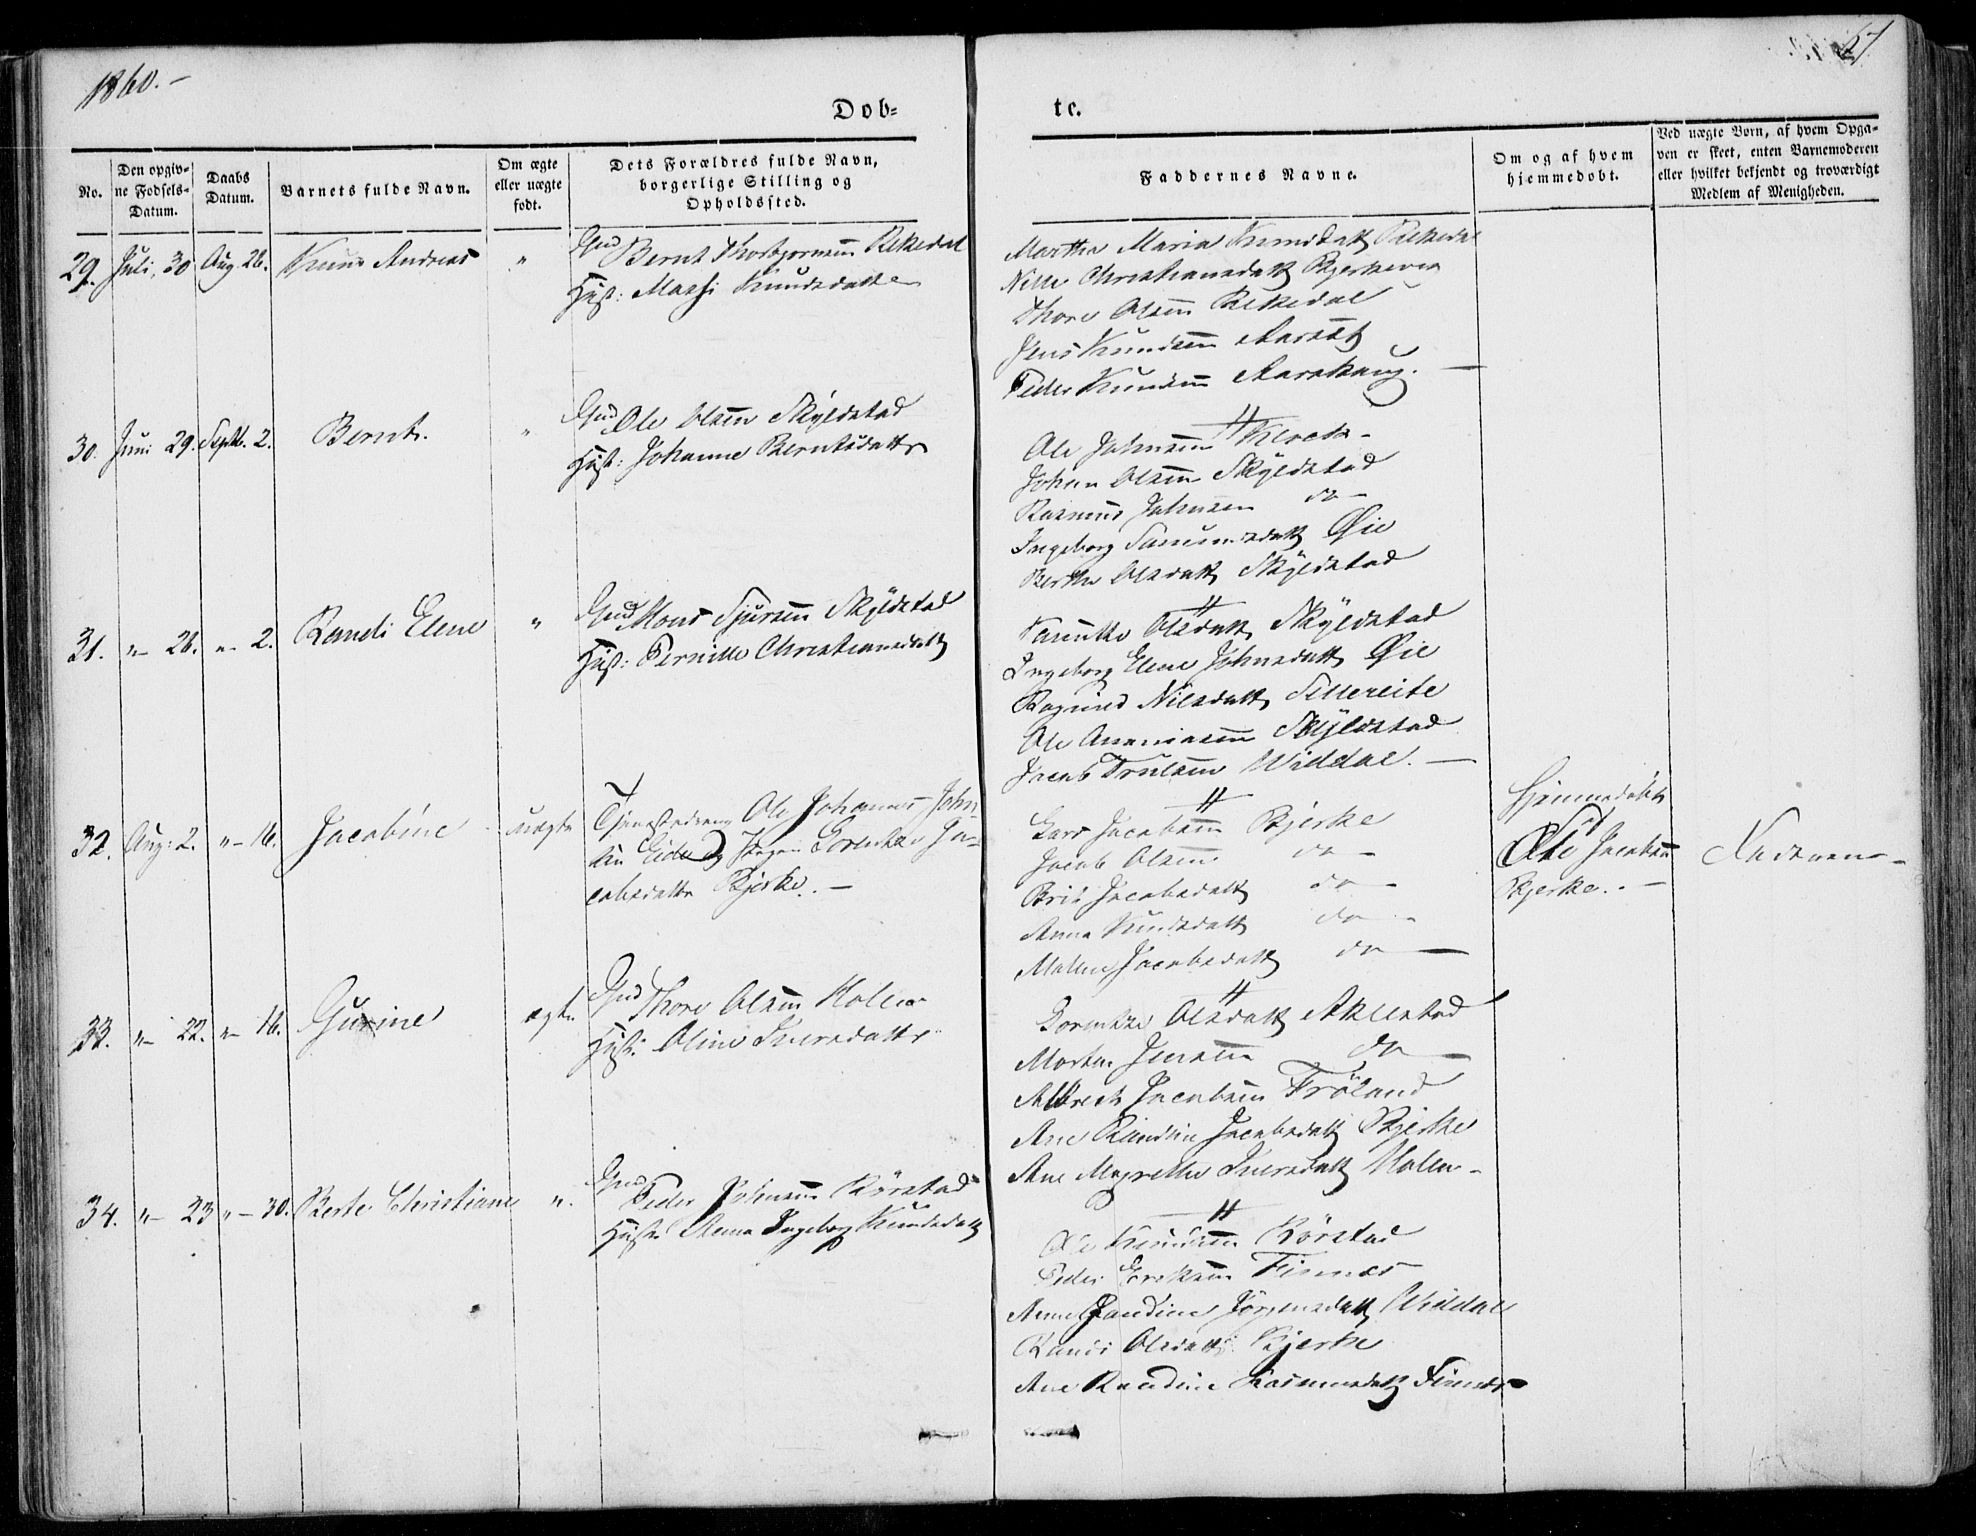 1860.-
67
Døb=
te.
No.
Den opgiv=
ne Fødsels=
Datum.
Daabs
Datum.
Barnets fulde Navn.
Om ægte
eller uægte
født.
Dets Forældres fulde Navn,
borgerlige Stilling og
Opholdssted.
Faddernes Navne.
Om og af hvem
hjemmedøbt.
Ved uægte Børn, af hvem Opga=
ven er skeet, enten Barnemoderen
eller hvilket bekjendt og troværdigt
Medlem af Menigheden.
29. Juli, 30 Aug. 26. Knud Andreas "
Gmd Bernt Thorbjørnsen Rekedal
Hust: Massi Knudsdatter
Martha Maria Knudsdatt Rekedal
Nille Christiansdatt Bjerkevig
Thore Olsen Rekedal
Jens Knudsen Aarsæt
Peder Knudsen Aarskaug. —
30. Juni 29. Septb. 2. Bernt. "
Gmd Ole Olsen Skyldstad
Hust: Johanne Berntsdatter
Ole Johnsen Klock -
Johan Olsen Skyldstad
Rasmus Johnsen do -
Ingeborg Rasmusdatt Øie
Berthe Olsdatt Skyldstad
31. "- 26. "- 2. Randi Elene "
Gmd Mons Sjursen Skyldstad
Hust: Pernille Christiansdatt
Olsdatt Skyldstad
Ingeborg Elene Johnsdatt Øie
Ragnild Nilsdatt Sellereite
Ole Ananiasen Skyldstad
Jacob Trulsen Widdal. —
32. Aug: 2. "- 16. Jacobine uægte
Ole Johannes John-
sen Eide og Pigen Gorentze Ja-
cobsdatter Bjerke. —
Lars Jacobsen Bjerke
Jacob Olsen do -
Brit Jacobsdatt do -
Anna Knudsdatt do -
Malene Jacobsdatt do —
Hjemmedøbt
Ole Jacobsen
Bjerke. -
Faderen -
33. "- 22. "- 16. Gurine ægte
Gmd Thore Olsen Holen
Hust: Oline Iversdatter
Gorentze Olsdatt Aklestad
Morten Jensen do —
Albrect Jacobsen Frøland
Ane Randine Jacobsdatt Bjerke
Ane Magrethe Iversdatt Holen -
34. "- 23 "- 30. Berte Christiane ".
Gmd Peder Johnsen Rørstad
Hust: Anna Ingeborg Knudsdatt
Ole Knudsen Rørstad
Peder Eriksen Finnæs
Anne Jørgensdatt Widdal
Randi Olsdatt Bjerke
Ane Randine Rasmusdatt Finnæs -